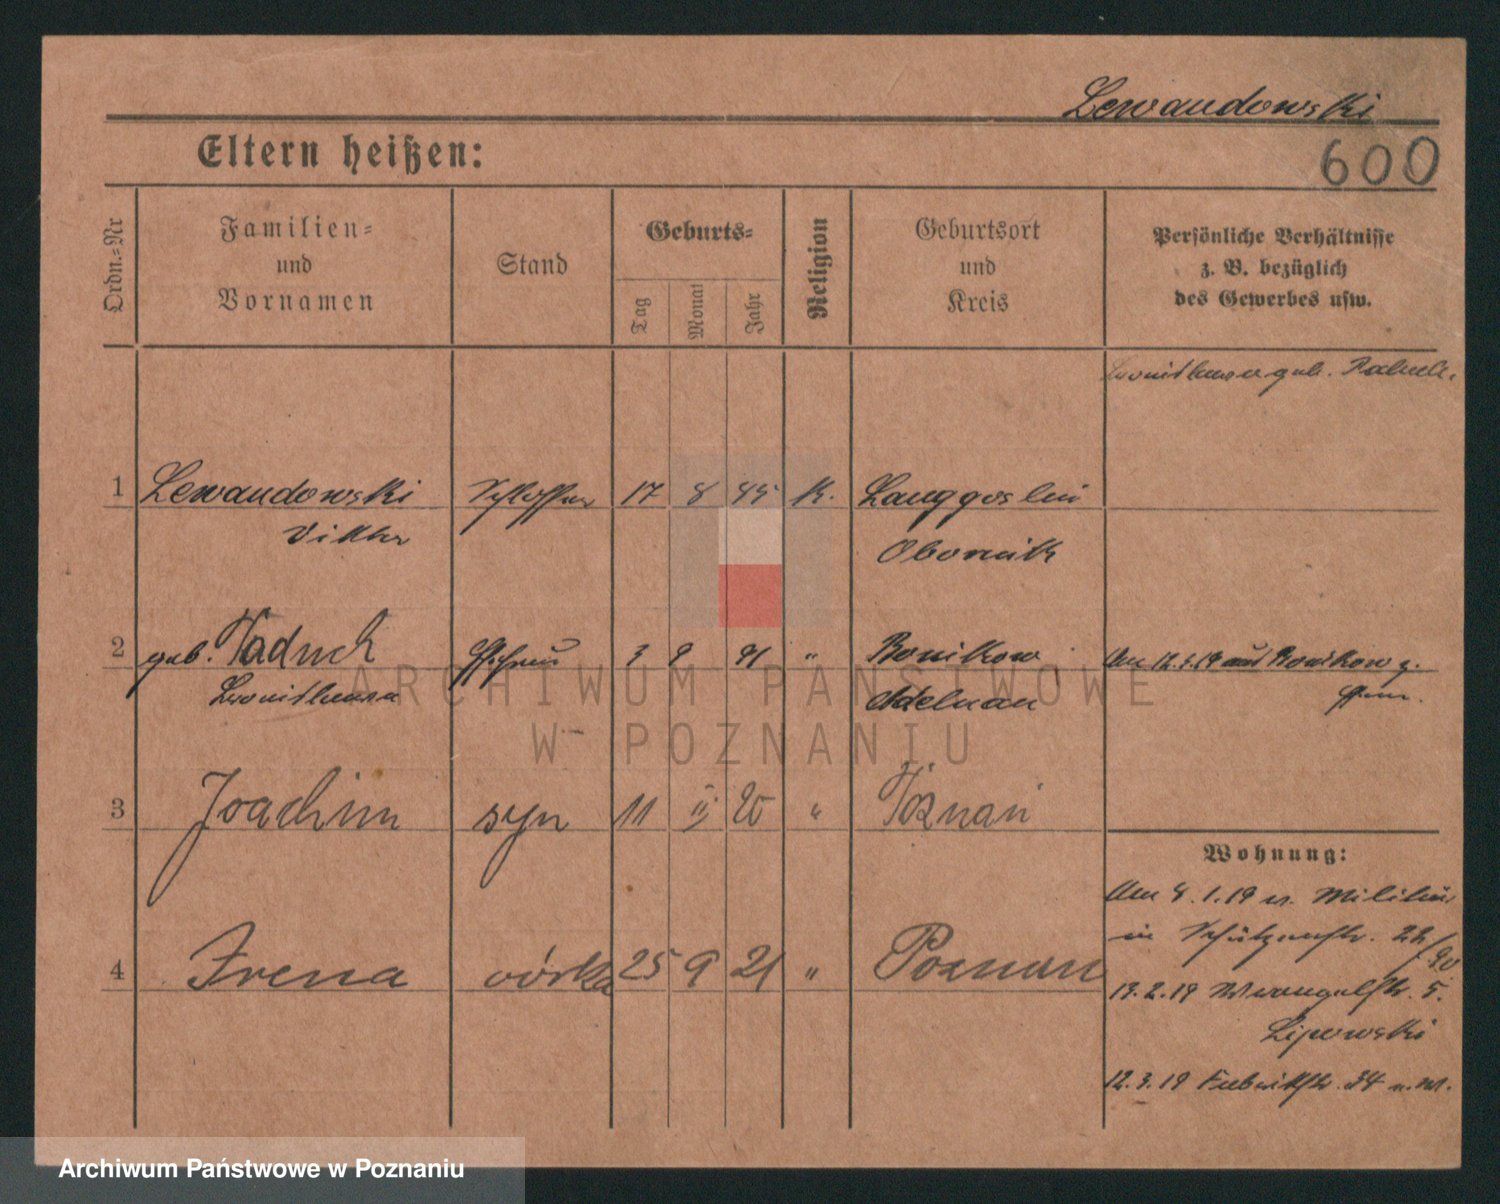 Lewandowski
Eltern heißen:
600
Ordn.-Nr
Familien-
und
Vornamen
Stand
Geburts-
Tag
Monat
Jahr
Religion
Geburtsort
und
Kreis
Persönliche Verhältnisse
z. B. bezüglich
des Gewerbes usw.
geb.
1 Lewandowski Schlosser 17 8 K. Langgoslin
Viktor Obornik
2 geb. 3 9 91 " Bonikowo Am 12.3.19 aus Bonikowo z.
Adelnau
ARCHIWUM PAŃSTWOWE
W POZNANIU
3 Joachim syn 11 20 " Poznań
Wohnung:
Am 8.1.19 v. Militär
in Schützenstr. 22/90
4 Irena córka 25 9 21 " Poznań
13.2.19 Wrangelstr. 5.
Lipowski
12.3.19 Fabrikstr. 34
Archiwum Państwowe w Poznaniu